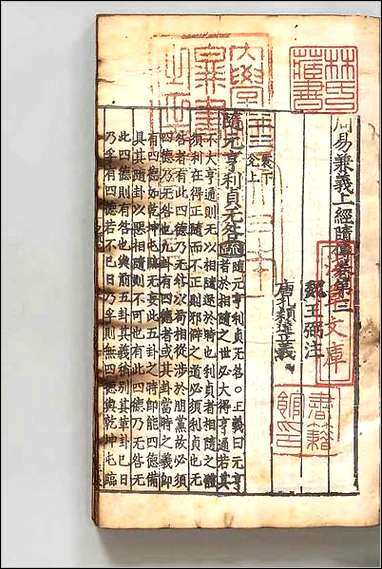 周易兼義上經隨傳卷第三
魏王弼注
唐孔穎達正義
隨元亨利貞无咎疏隨元亨利貞无咎○正義曰元亨
者於相隨之世必大得亨通若其
不大亨通則无以相隨逆於時也利貞者相隨之體
須利在得正隨而不正則邪僻之道必須利貞也无
咎者有此四德乃无咎以苟相從涉於朋黨故必須
四德乃无咎也凡卦有四德者或其卦當時之義即
有四德如乾坤屯臨无妄此五卦之時即能四德備
具其隨卦以惡相隨則不可也有此四德乃无咎无
此四德則有咎也與前五卦其義稍別其革卦已日
乃孚有四德若不已日乃孚則无四德與乾坤屯臨
林氏
藏書
文庫
書籍
館印